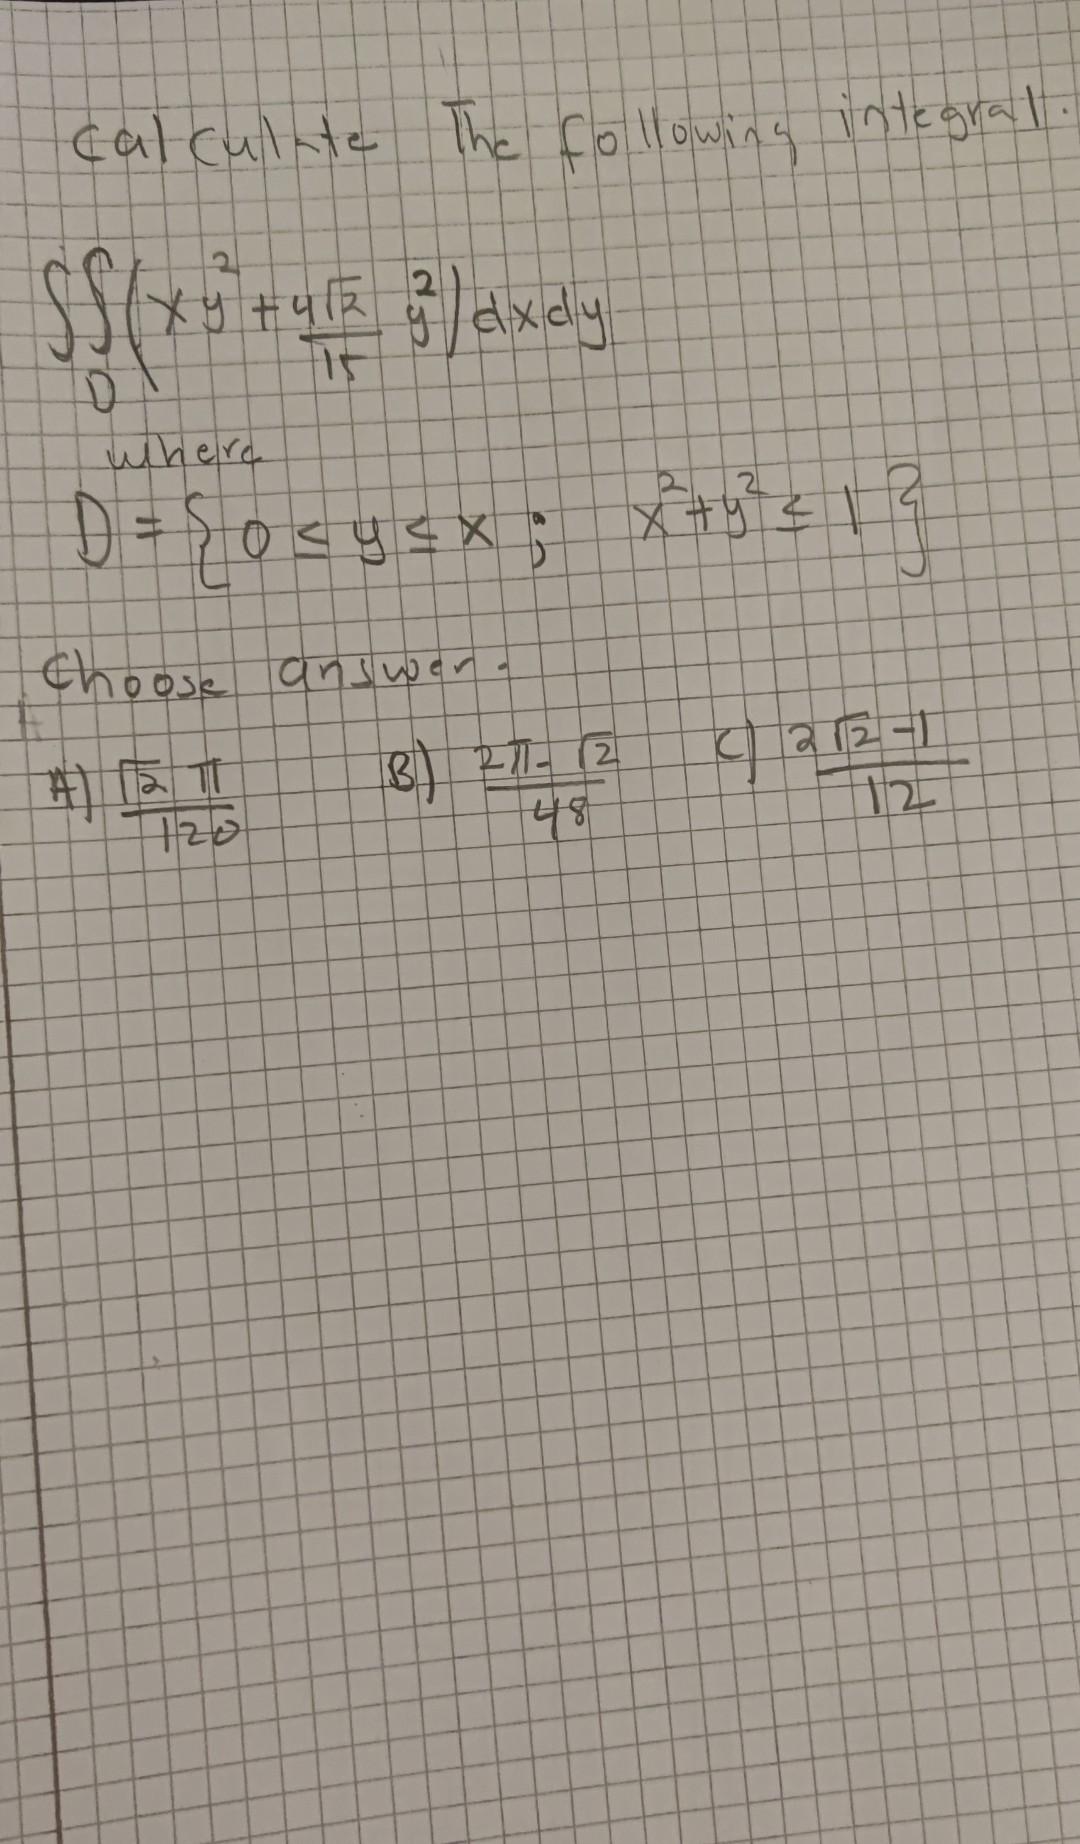 calculate The following integral.
∬(xy² + 4√2/15 y²)dxdy
D
where
D = { 0 ≤ y ≤ x ; x² + y² ≤ 1 }
Choose answer.
A) √2 π/120 B) 2π - √2/48 C) 2√2 - 1/12